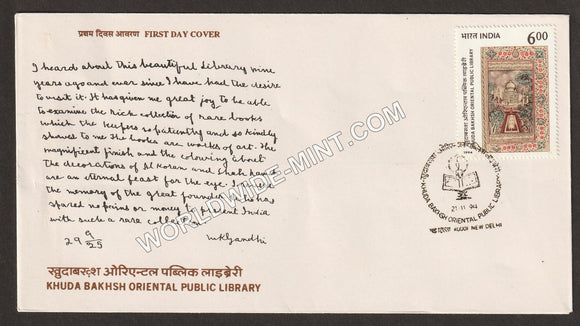 प्रथम दिवस आवरण FIRST DAY COVER
I heard about this beautiful library nine
years ago and ever since I have had the desire
to visit it. It has given me great joy to be able
to examine the rich collection of rare books
which the keepers so patiently and so kindly
showed to me. The books are works of art. The
magnificent finish and the colouring about
the decorations of the Koran and Shah nama
are an eternal feast for the eye. I
the memory of the great founder who has
spared no pains or money to present India
with such a rare
29 9/25 MKGandhi
खुदाबख़्श ओरिएन्टल पब्लिक लाइब्रेरी
KHUDA BAKHSH ORIENTAL PUBLIC LIBRARY
भारत INDIA
6.00
खुदाबख़्श ओरिएन्टल पब्लिक लाइब्रेरी
KHUDA BAKHSH ORIENTAL PUBLIC LIBRARY
KHUDA BAKHSH ORIENTAL PUBLIC LIBRARY
21-11-94
नई दिल्ली NEW DELHI
WORLDWIDE-MINT.COM